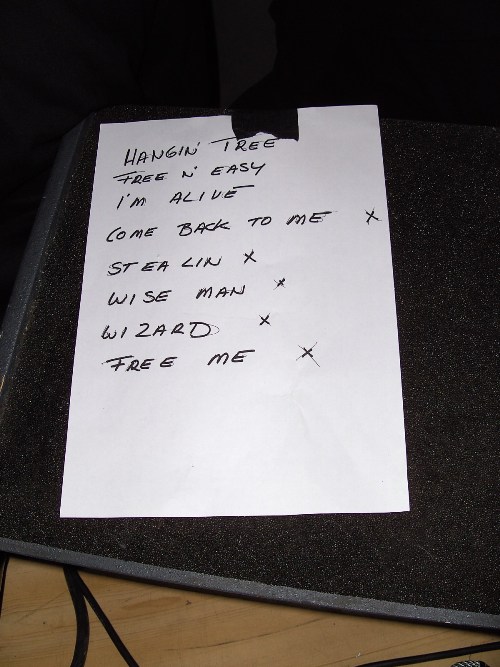 HANGIN' TREE
FREE N' EASY
I'M ALIVE
COME BACK TO ME X
STEALIN X
WISE MAN X
WIZARD X
FREE ME X